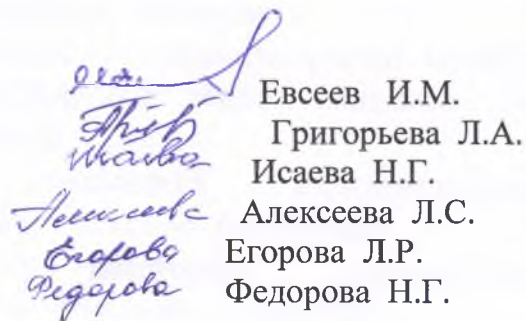 Евсеев И.М.
Григорьева Л.А.
Исаева Н.Г.
Алексеева Алексеева Л.С.
Егорова Егорова Л.Р.
Федорова Федорова Н.Г.